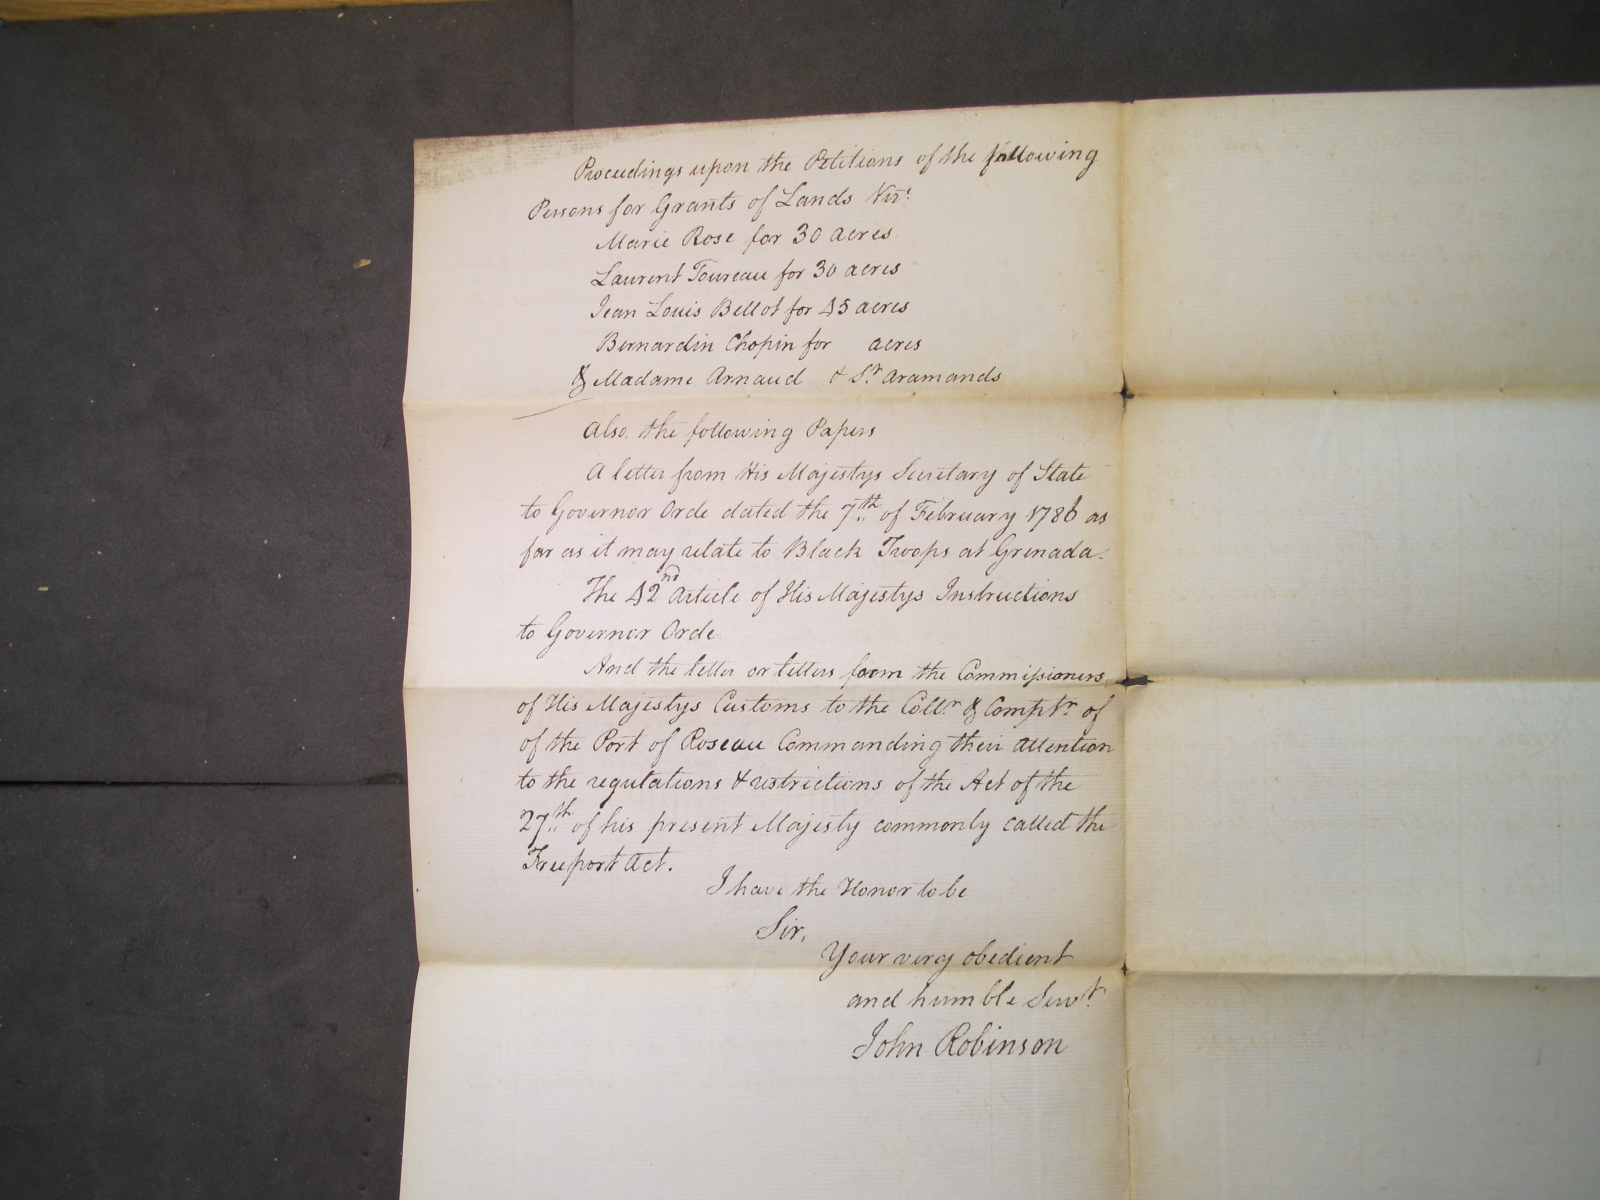 Proceedings upon the Petitions of the following
Persons for Grants of Lands Vizt
Marie Rose for 30 acres
Laurent Toureau for 30 acres
Jean Louis Bellot for 45 acres
Bernardin Chopin for acres
& Madame Arnaud & Sr. Aramands
Also the following Papers
A letter from His Majestys Secretary of State
to Governor Orde dated the 7th of February 1786 as
far as it may relate to Black Troops at Grenada.
The 42nd Article of His Majestys Instructions
to Governor Orde.
And the letter or letters from the Commissioners
of His Majestys Customs to the Collr & Comptr of
of the Port of Roseau Commanding their Attention
to the regulations & restrictions of the Act of the
27th of his present Majesty commonly called the
Freeport Act.
I have the Honor to be
Sir,
Your very obedient
and humble Servt
John Robinson